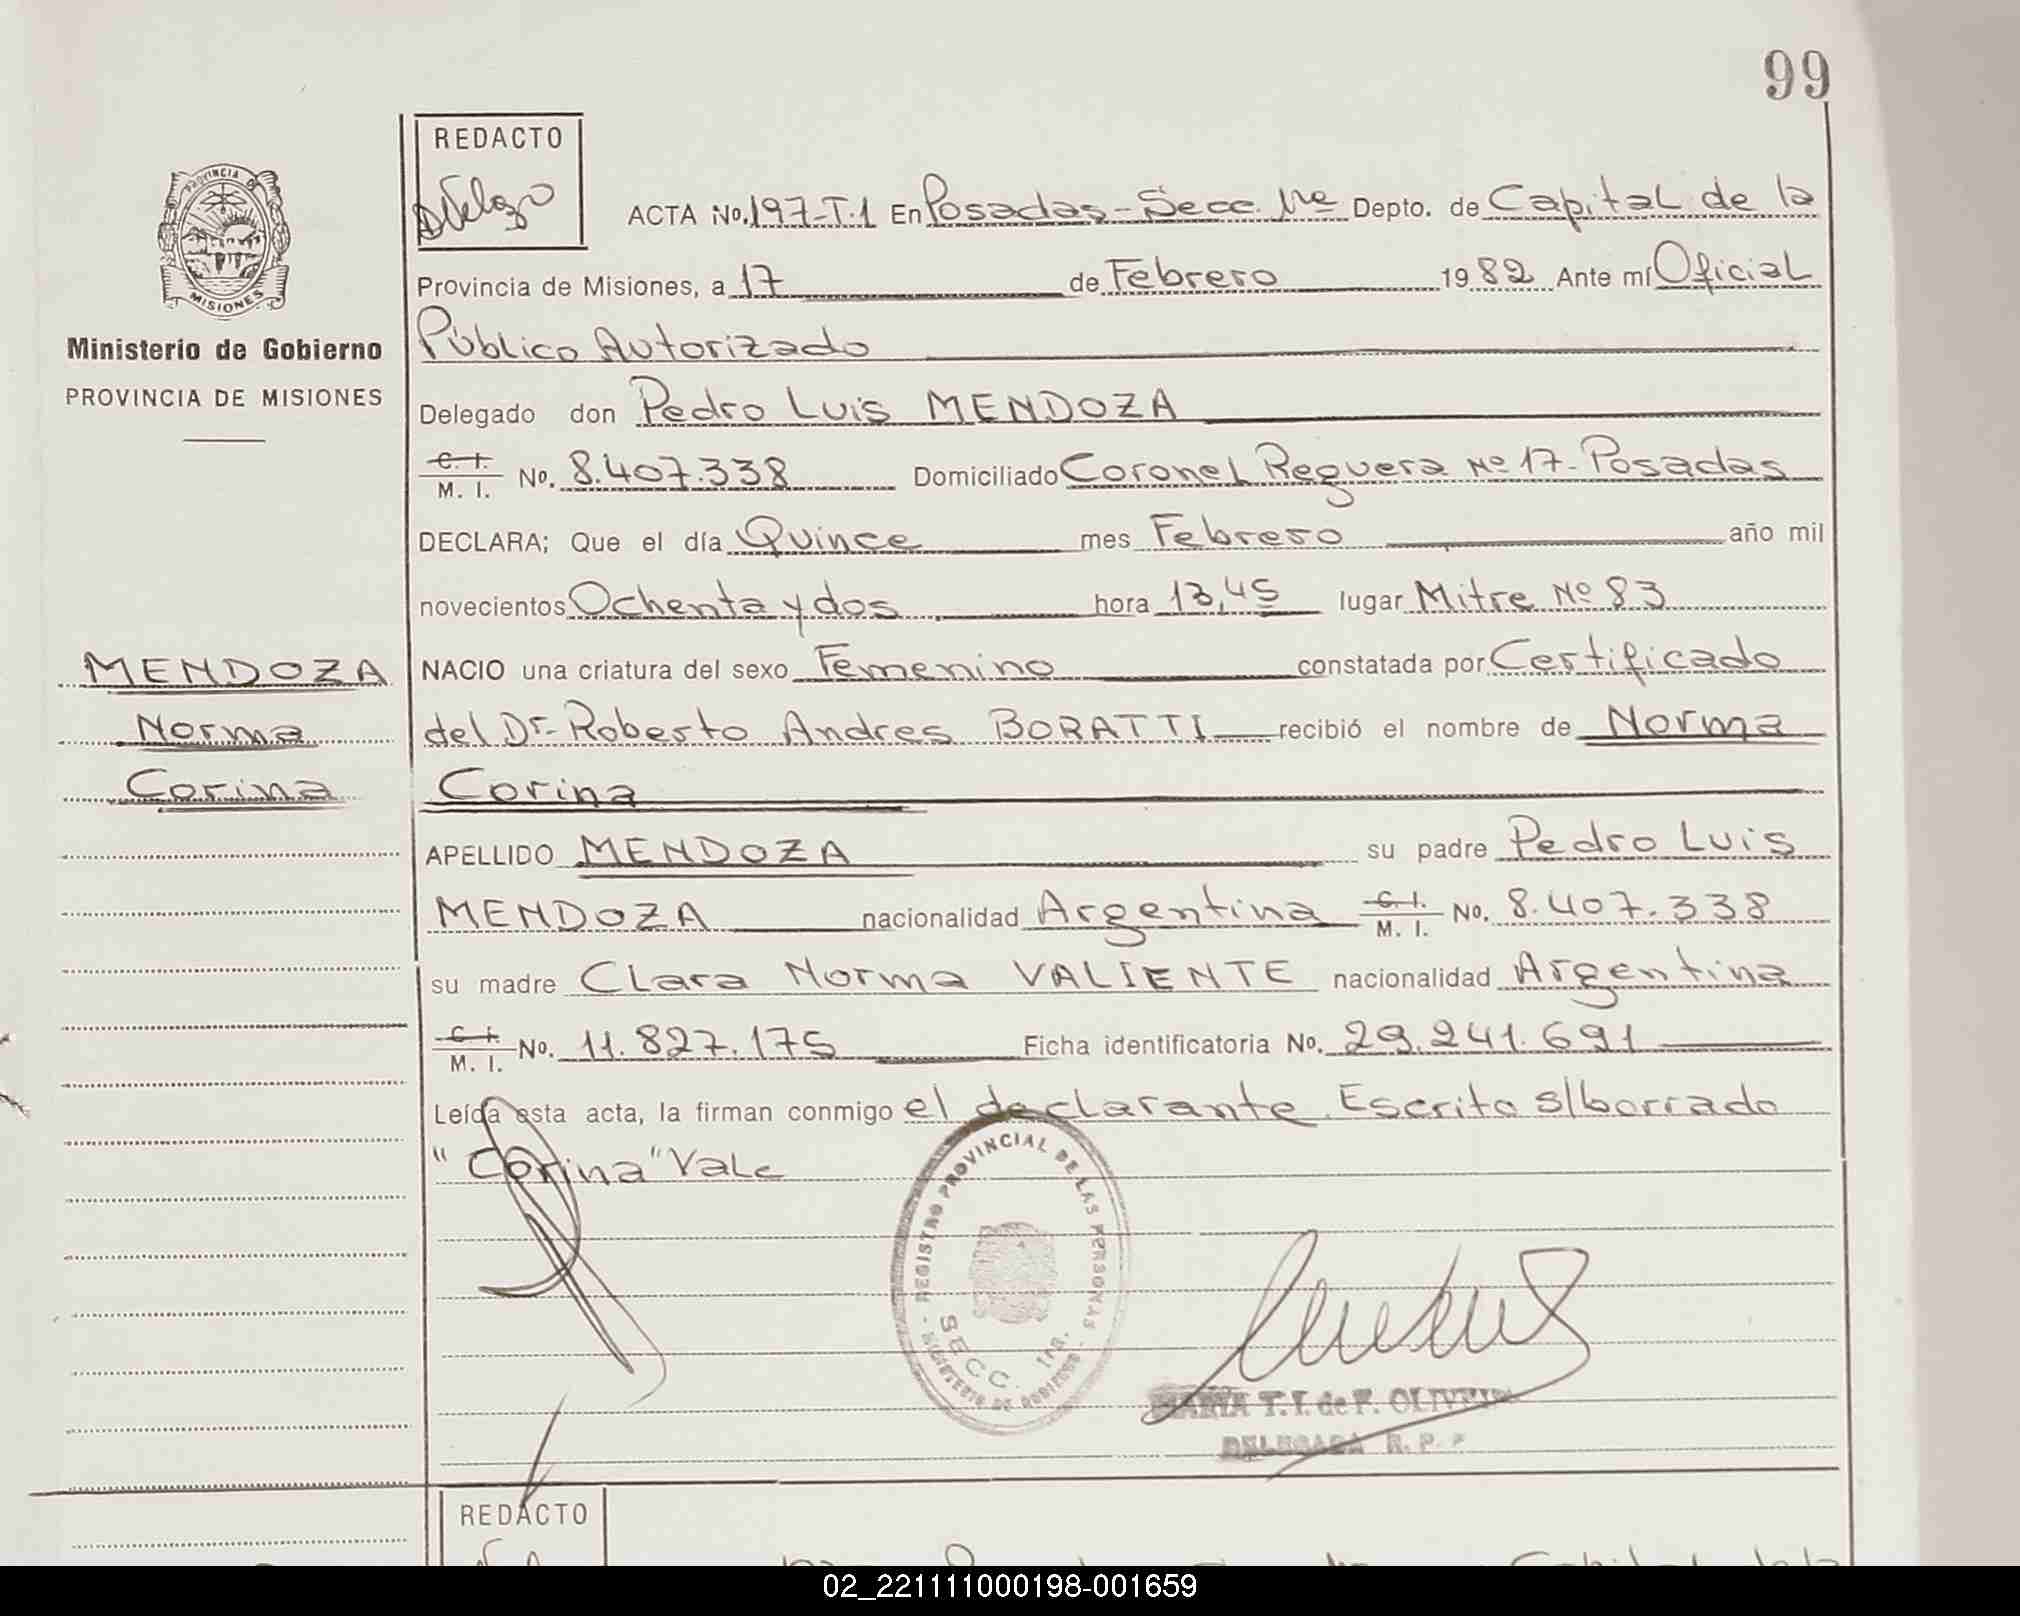 99
REDACTO
PROVINCIA DE
MISIONES
Ministerio de Gobierno
PROVINCIA DE MISIONES
ACTA No. 197-T.1 En Posadas-Secc. 1ra Depto. de Capital de la
Provincia de Misiones, a 17 de Febrero 1982 Ante mí Oficial
Público Autorizado
Delegado don Pedro Luis MENDOZA
C. I. / M. I. No. 8.407.338 Domiciliado Coronel Reguera Nº 17-Posadas
DECLARA; Que el día Quince mes Febrero año mil
novecientos Ochenta y dos hora 13,45 lugar Mitre Nº 83
NACIO una criatura del sexo Femenino constatada por Certificado
del Dr. Roberto Andres BORATTI recibió el nombre de Norma
Corina
APELLIDO MENDOZA su padre Pedro Luis
MENDOZA nacionalidad Argentina C. I. / M. I. No. 8.407.338
su madre Clara Norma VALIENTE nacionalidad Argentina
C. I. / M. I. No. 11.827.175 Ficha identificatoria No. 29.241.691
Leída esta acta, la firman conmigo el declarante. Escrito s/borrado
"Corina" Vale
MENDOZA
Norma
Corina
REGISTRO PROVINCIAL DE LAS PERSONAS
MINISTERIO DE GOBIERNO
SECC. 1ra.
MARIA T. I. de F.
DELEGADA R. P.
REDACTO
02_221111000198-001659